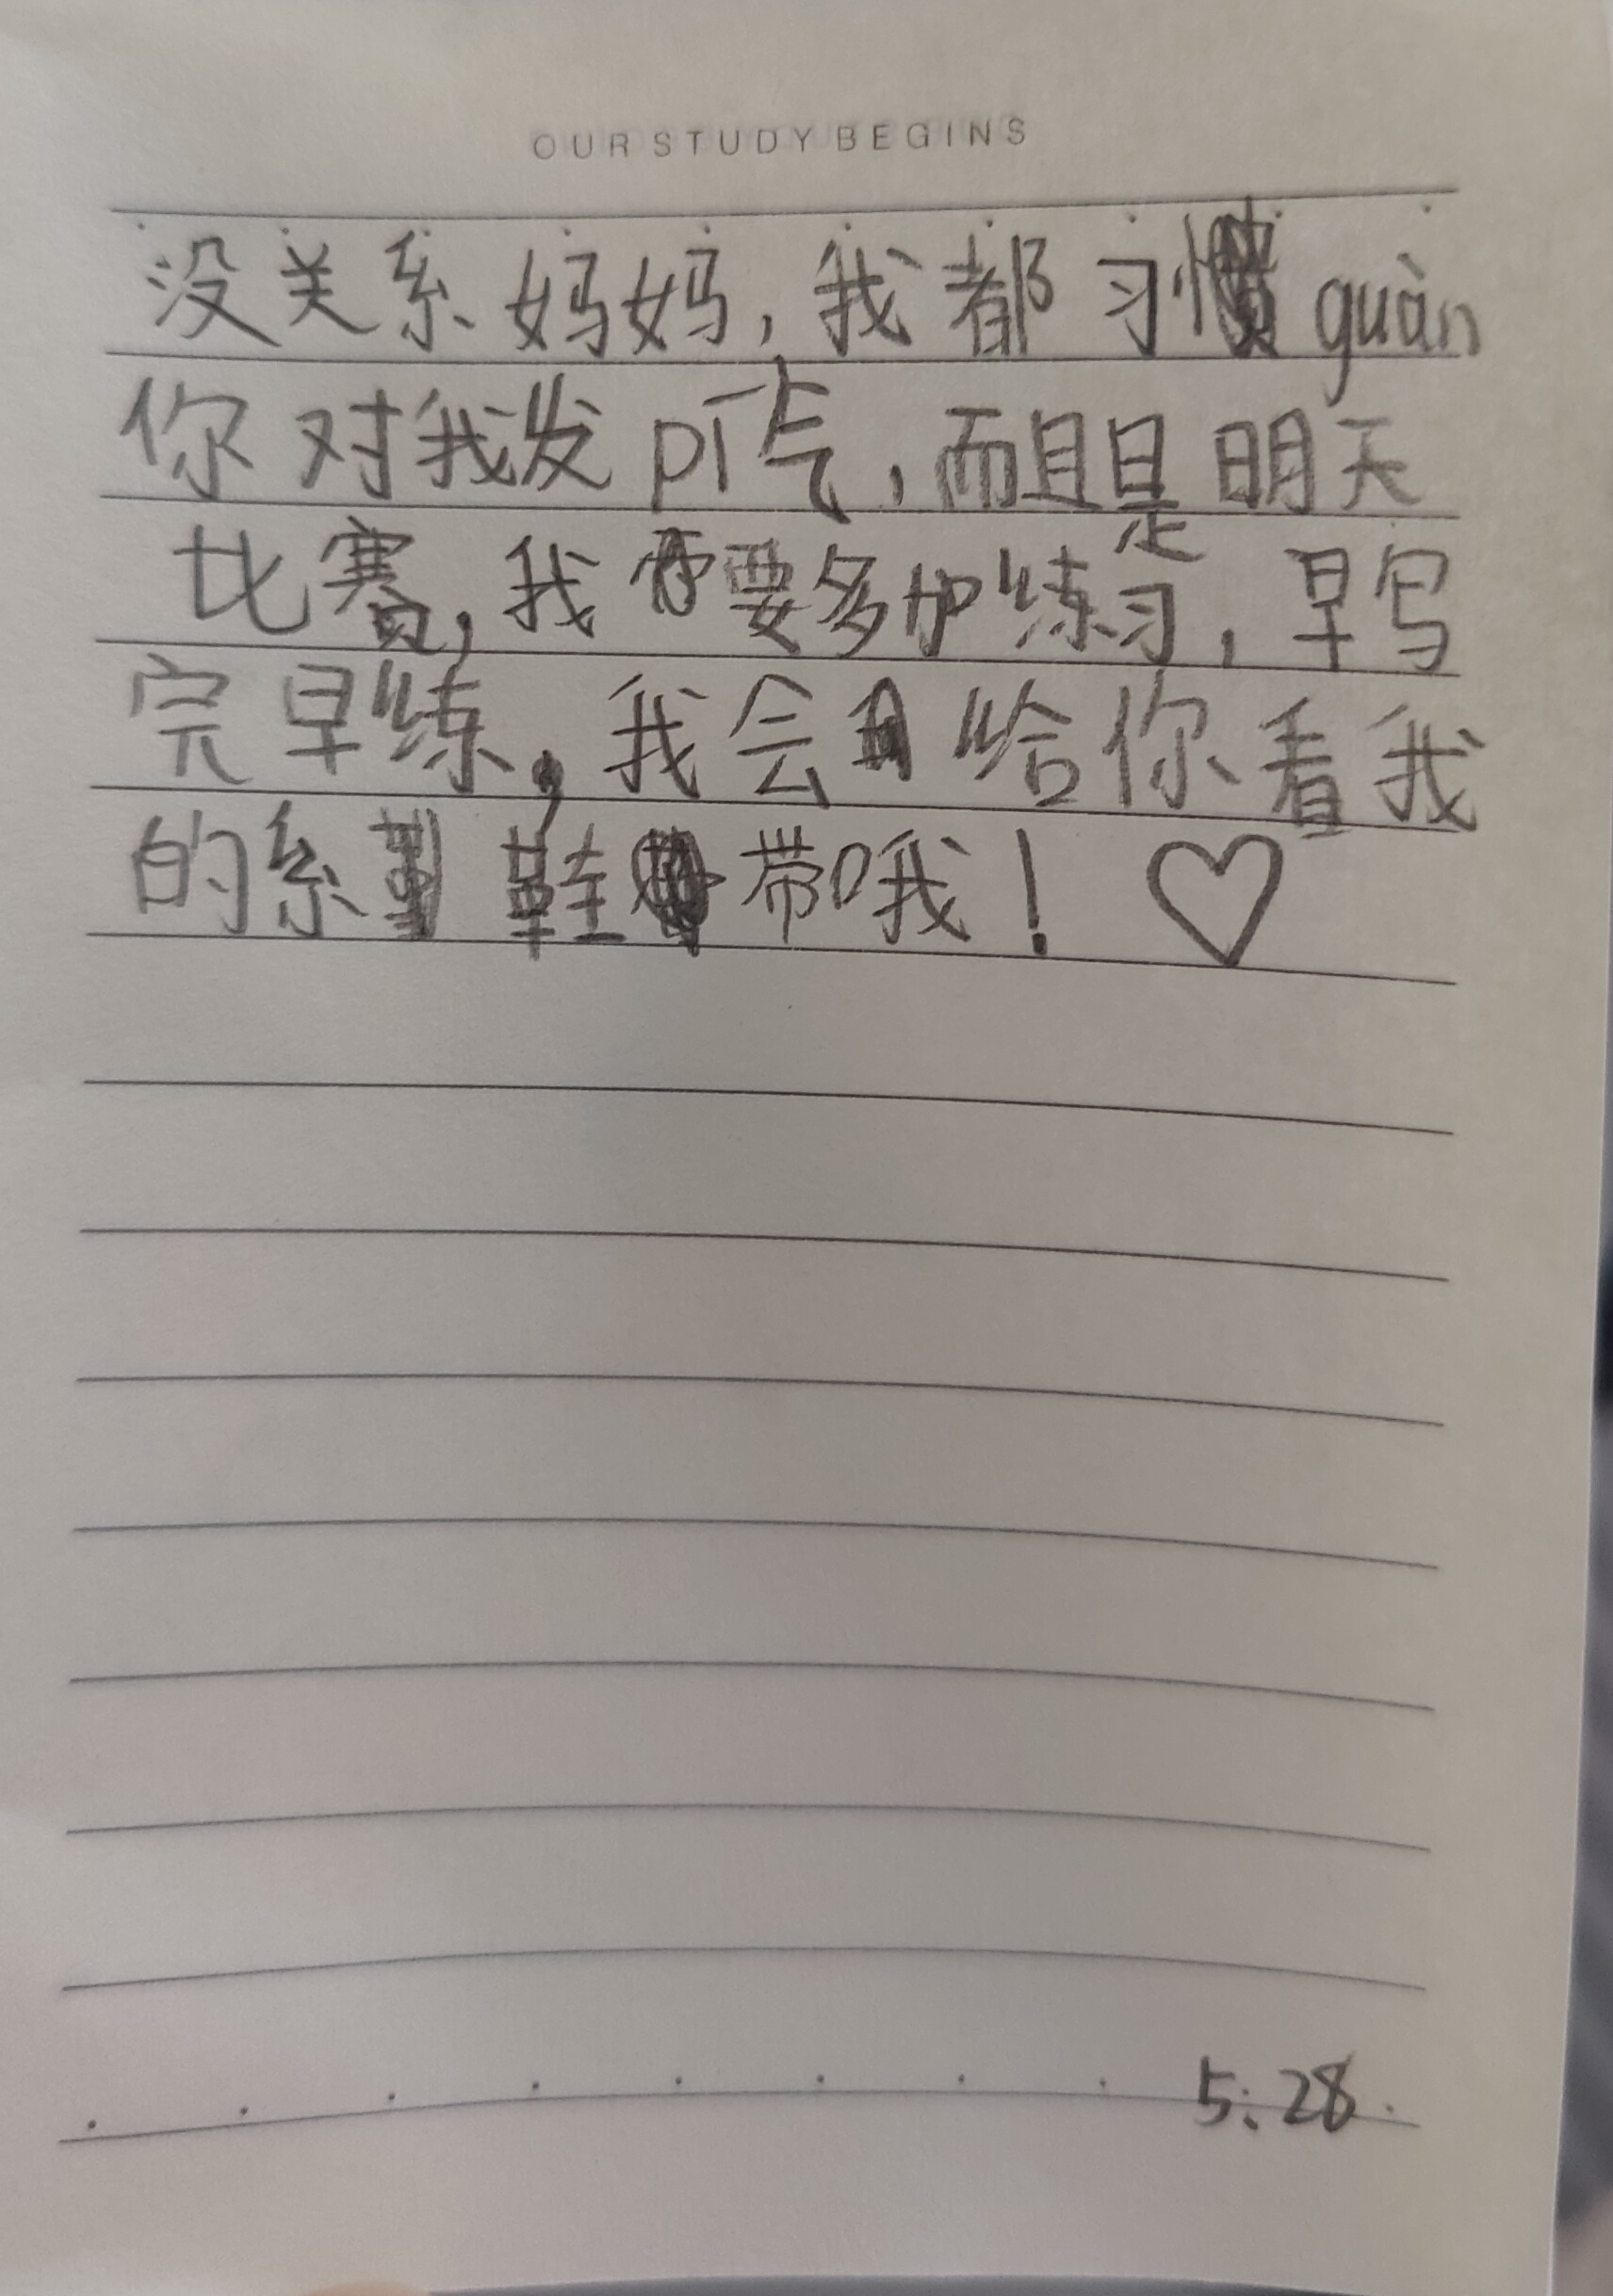 OUR STUDY BEGINS
没关系妈妈,我都习惯guàn
你对我发pí气,而且是明天
比赛,我需要多加练习,早写
完早练,我会给你看我
的系鞋带哦!
5:28